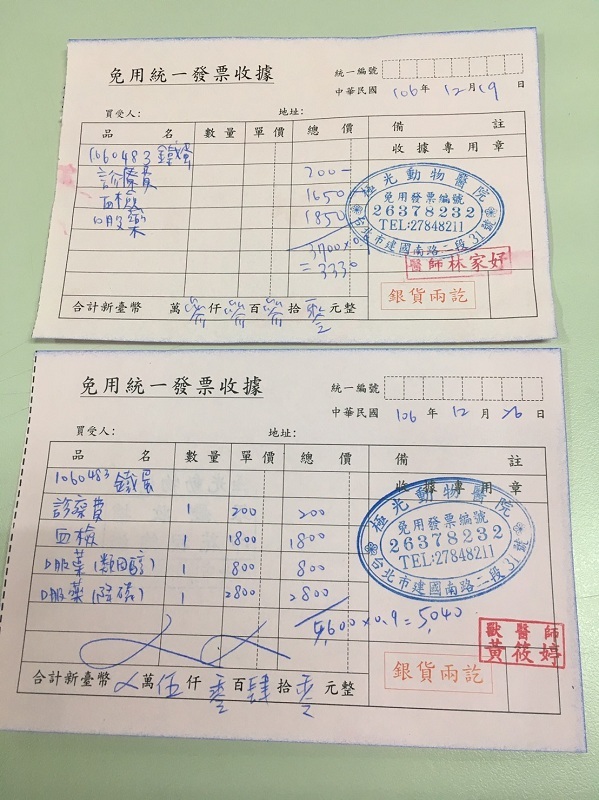 免用統一發票收據
統一編號
中華民國 106年 12月19日
買受人： 地址：
品名 數量 單價 總價 備註
1060483 鐵蛋 收據專用章
診療費 200-
血檢 1650
口服藥 1850
3700x0.9
=3330
極光動物醫院
免用發票編號
26378232
TEL:27848211
台北市建國南路二段31號
醫師林家妤
銀貨兩訖
合計新臺幣 萬參仟參百參拾零元整
免用統一發票收據
統一編號
中華民國 106年 12月26日
買受人： 地址：
品名 數量 單價 總價 備註
1060483 鐵蛋 收據專用章
診察費 1 200 200
血檢 1 1800 1800
口服藥(類固醇) 1 800 800
口服藥(降磷) 1 2800 2800
5,600x0.9=5,040
極光動物醫院
免用發票編號
26378232
TEL:27848211
台北市建國南路二段31號
獸醫師
黃筱婷
銀貨兩訖
合計新臺幣 萬伍仟零百肆拾零元整